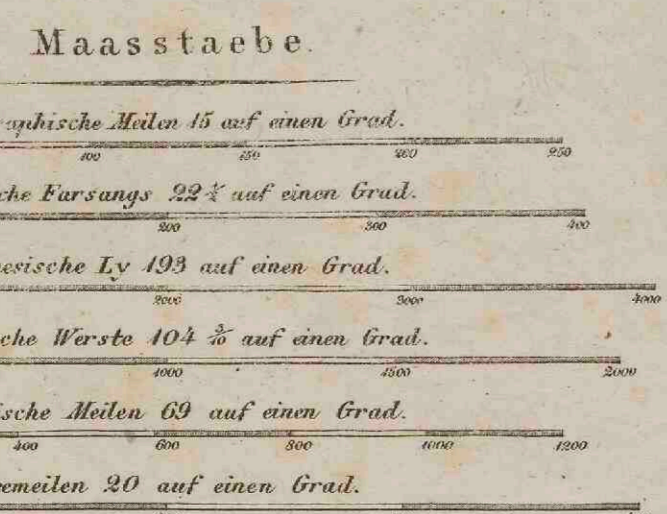 Maasstaebe.
aphische Meilen 15 auf einen Grad.
100 150 200 250
che Farsangs 22 auf einen Grad.
200 300 400
esische Ly 193 auf einen Grad.
2000 3000 4000
che Werste 104 3/10 auf einen Grad.
1000 1500 2000
ische Meilen 69 auf einen Grad.
400 600 800 1000 1200
emeilen 20 auf einen Grad.